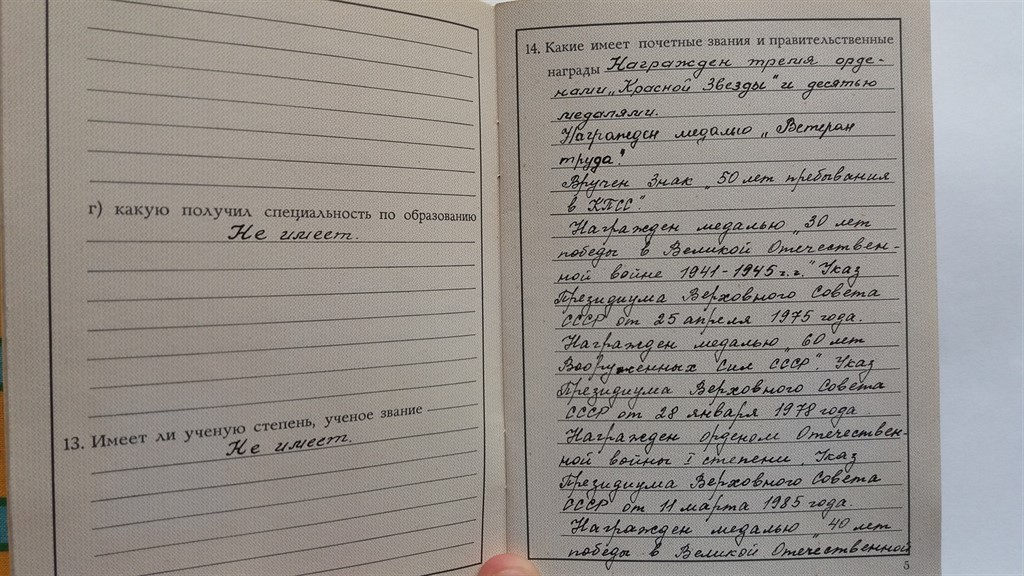 г) какую получил специальность по образованию
Не имеет.
13. Имеет ли ученую степень, ученое звание
Не имеет.
14. Какие имеет почетные звания и правительственные
награды Награжден тремя орде-
нами „Красной Звезды" и десятью
медалями.
Награжден медалью „Ветеран
труда".
Вручен Знак „50 лет пребывания
в КПСС".
Награжден медалью „30 лет
победы в Великой Отечествен-
ной войне 1941-1945 г.г." Указ
Президиума Верховного Совета
СССР от 25 апреля 1975 года.
Награжден медалью „60 лет
Вооруженных Сил СССР". Указ
Президиума Верховного Совета
СССР от 28 января 1978 года.
Награжден орденом Отечествен-
ной войны I степени. Указ
Президиума Верховного Совета
СССР от 11 марта 1985 года.
Награжден медалью "40 лет
победы в Великой Отечественной
5